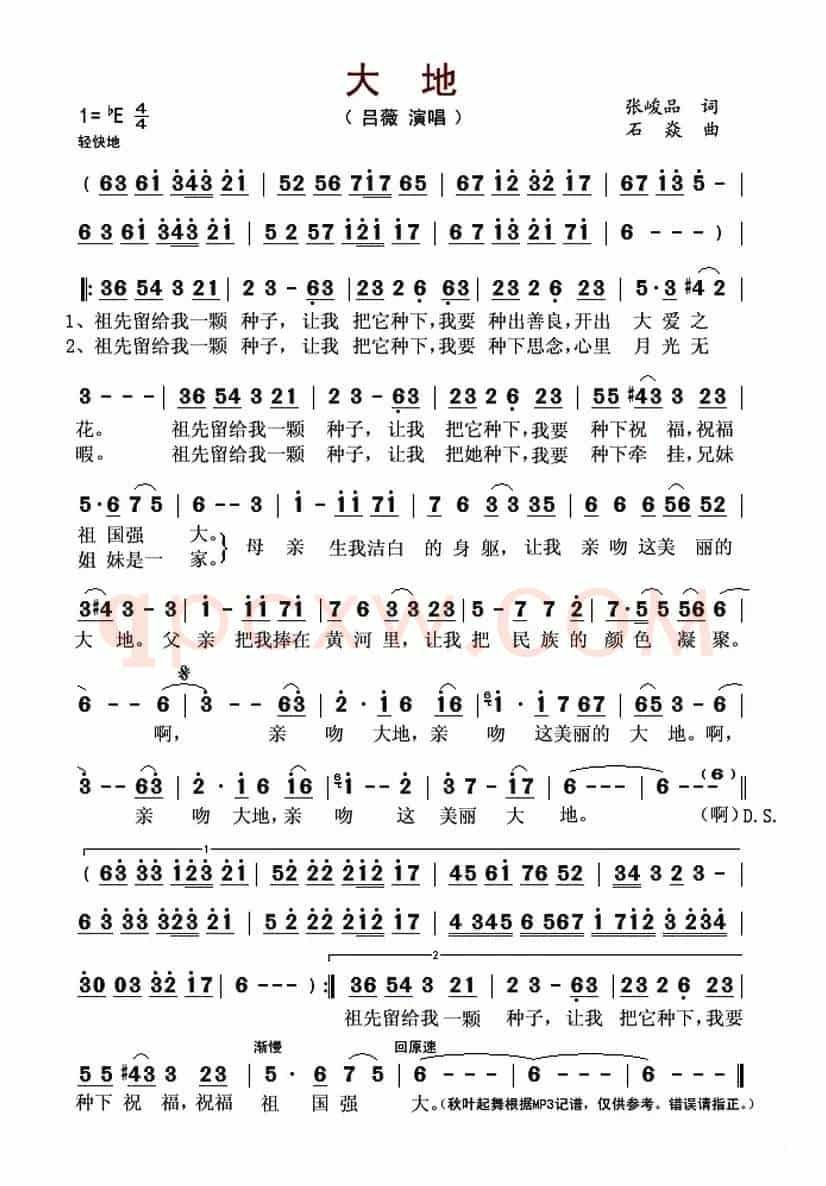 大 地
1=♭E 4/4
（吕薇 演唱）
张峻品 词
石 焱 曲
轻快地
( 63 61 343 21 | 52 56 717 65 | 67 12 32 17 | 67 13 5 - |
6 3 61 343 21 | 5 2 57 121 17 | 6 7 13 21 71 | 6 - - ) |
‖: 36 54 3 21 | 2 3 - 63 | 23 2 6 63 | 23 2 6 23 | 5· 3 #4 2 |
1、祖先留给我一颗 种子，让我 把它种下，我要 种出善良，开出 大 爱之
2、祖先留给我一颗 种子，让我 把它种下，我要 种下思念，心里 月 光无
3 - - - | 36 54 3 21 | 2 3 - 63 | 23 2 6 23 | 55 #43 3 23 |
花。 祖先留给我一颗 种子，让我 把它种下，我要 种下祝 福，祝福
暇。 祖先留给我一颗 种子，让我 把她种下，我要 种下牵 挂，兄妹
5· 6 7 5 | 6 - - 3 | 1 - 11 71 | 7 6 3 3 35 | 6 6 6 56 52 |
祖 国强 大。} 母 亲 生我洁白 的 身 躯，让我 亲 吻 这美 丽的
姐 妹是一 家。
3#4 3 - 3 | 1 - 11 71 | 7 6 33 23 | 5 - 7 7 2 | 7· 5 5 56 6 |
大 地。父 亲 把我捧在 黄 河 里，让我 把 民 族 的 颜 色 凝 聚。
qpcxw.com
6 - - 6 | 3 - - 63 | 2· 1 6 16 | 1· 1 7 67 | 6 5 3 - 6 |
啊， 亲 吻 大地，亲 吻 这美丽的 大 地。啊，
3 - - 63 | 2· 1 6 16 | 1 - - 2 | 3 7 - 17 | 6 - - - | 6 - - - (6) ‖
亲 吻 大地，亲 吻 这 美丽 大 地。 (啊) D.S.
1
( 63 33 123 21 | 52 22 212 17 | 45 61 76 52 | 34 3 2 3 |
6 3 33 323 21 | 5 2 22 212 17 | 4 345 6 567 | 1 712 3 234 |
2
30 03 32 17 | 6 - - - ) :‖ 36 54 3 21 | 2 3 - 63 | 23 2 6 23 |
祖先留给我 一颗 种子，让我 把它种下，我要
渐慢 回原速
5 5 #43 3 23 | 5· 6 7 5 | 6 - - | 6 - - | 6 - - ‖
种下 祝 福，祝福 祖 国 强 大。（秋叶起舞根据MP3记谱，仅供参考。错误请指正。）